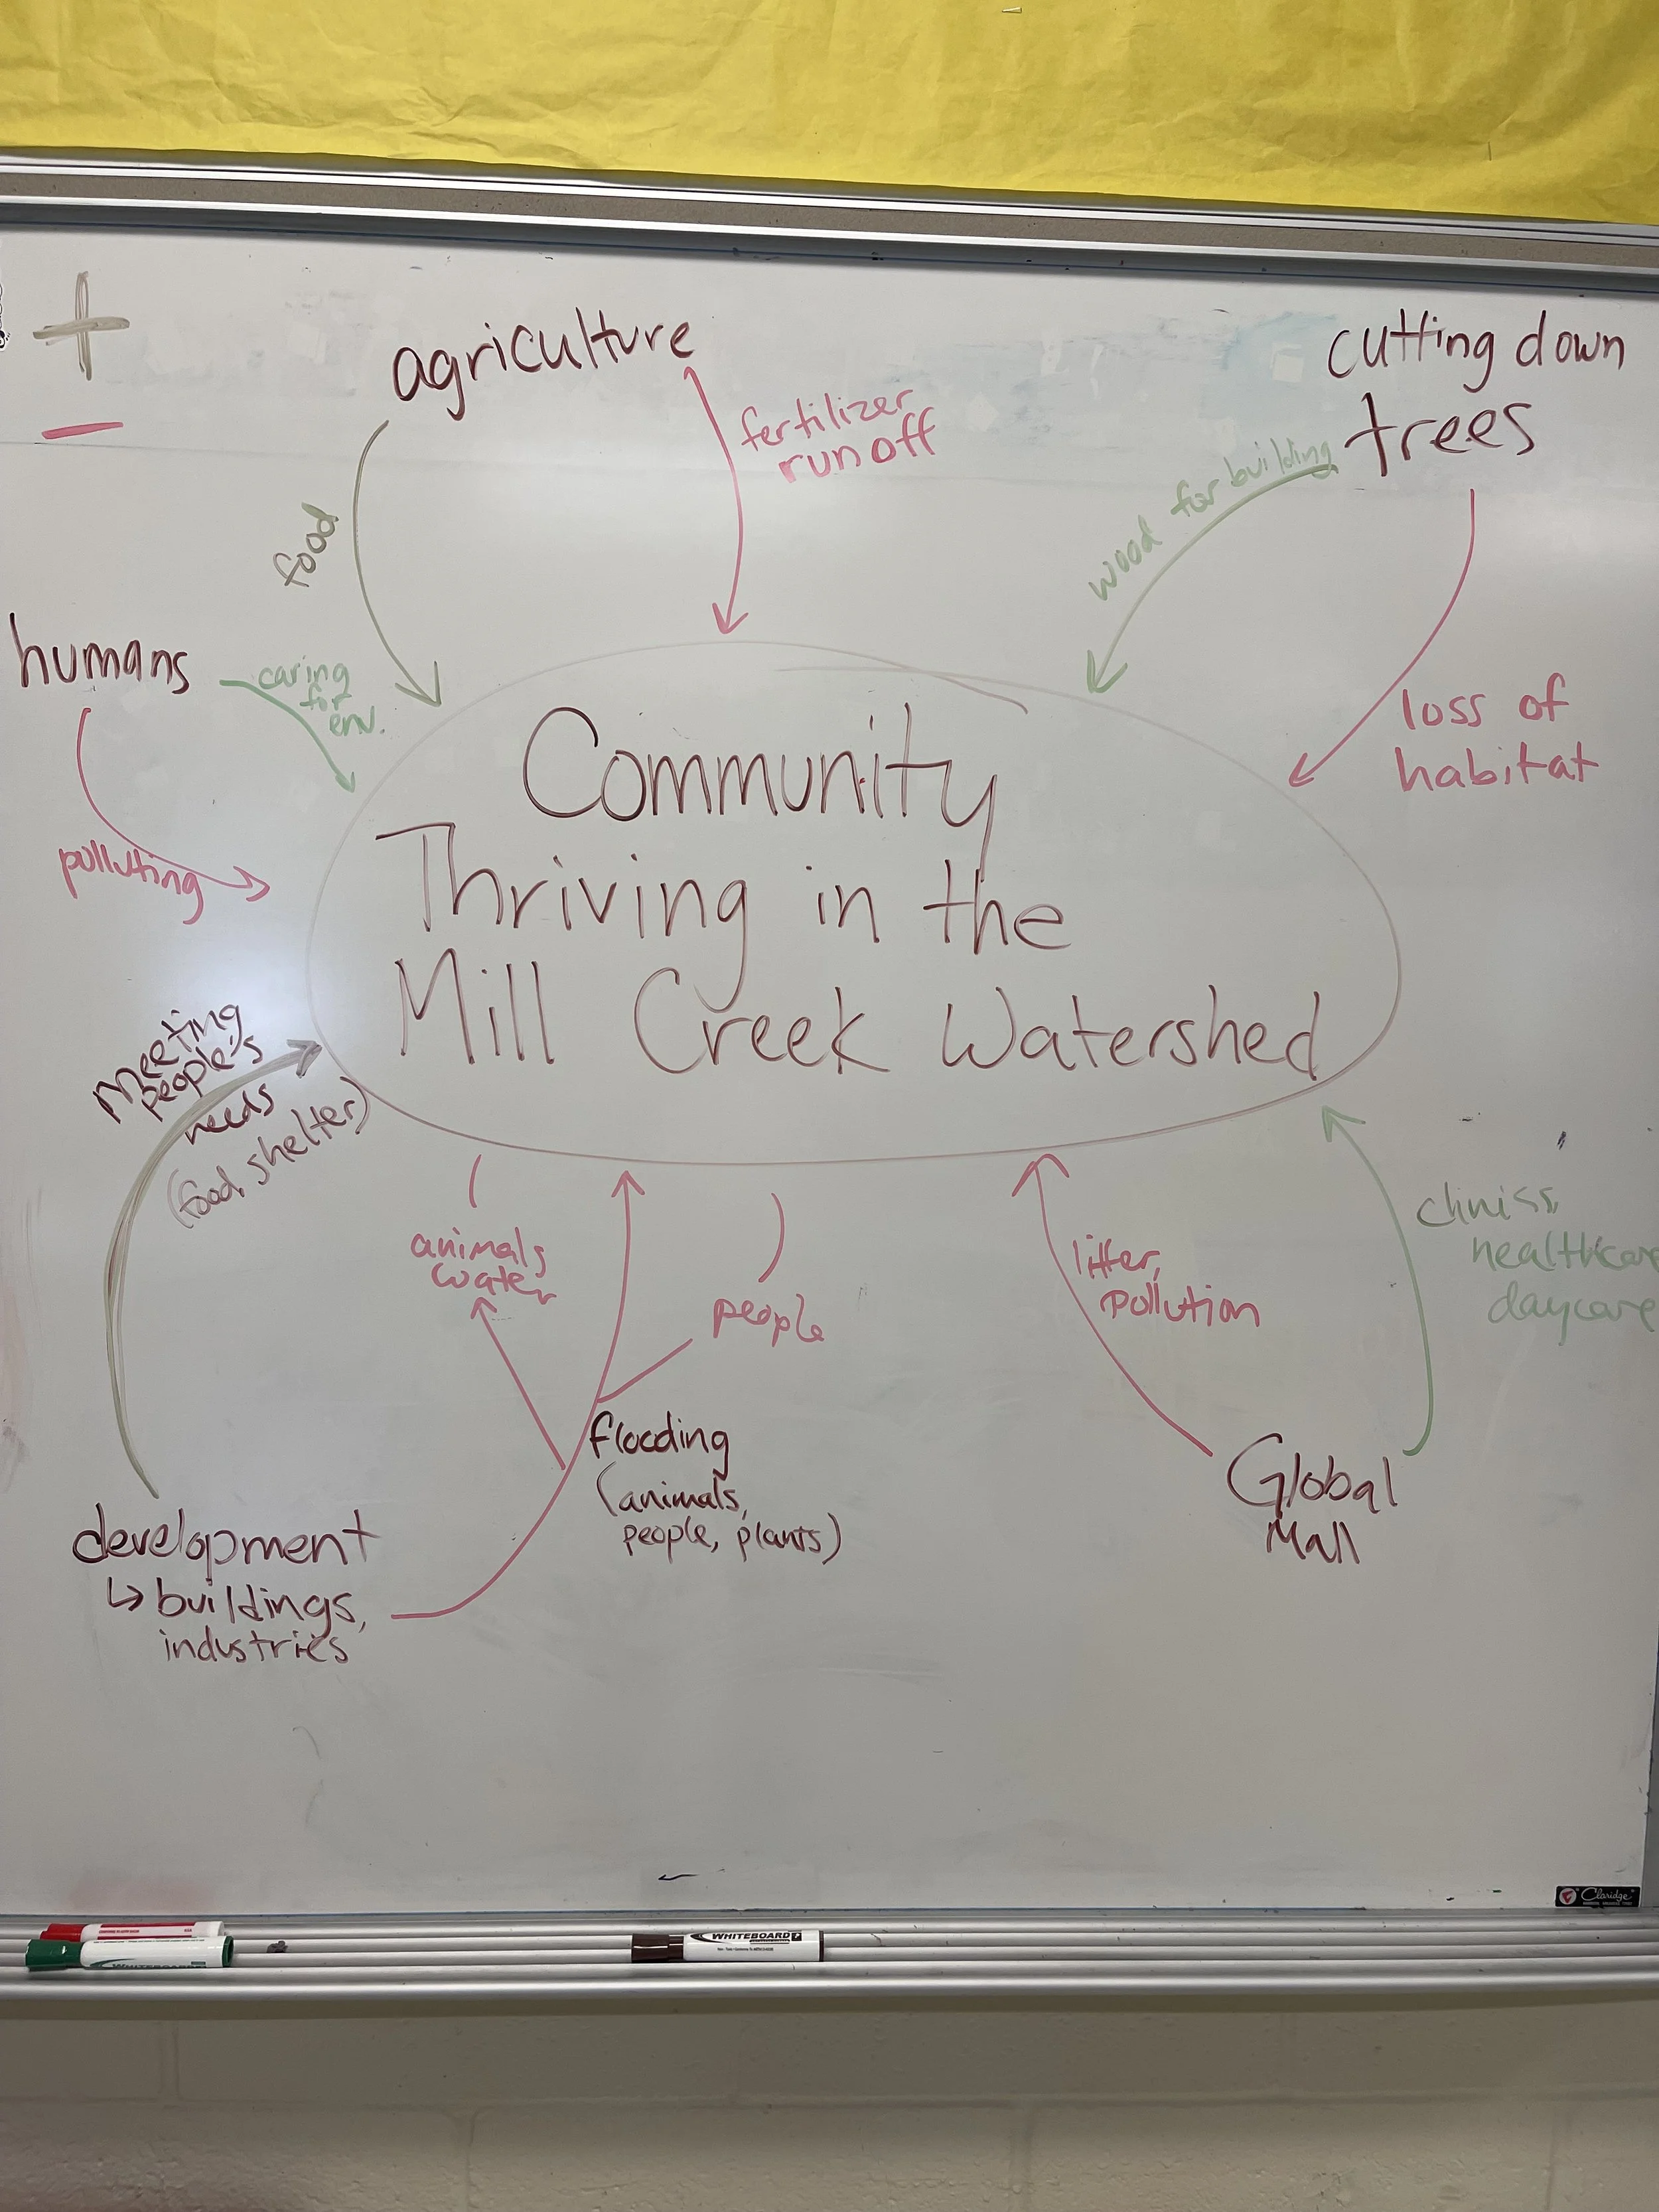 +
agriculture
cutting down
trees
-
fertilizer
run off
wood for building
food
humans
caring
for
env.
loss of
habitat
polluting
Community
Thriving in the
Mill Creek Watershed
Meeting
people's
needs
(food, shelter)
animals,
water
people
litter,
pollution
clinics,
healthcare
daycare
flooding
(animals,
people, plants)
Global
Mall
development
↳ buildings,
industries
Claridge
WHITEBOARD
WHITEBOARD